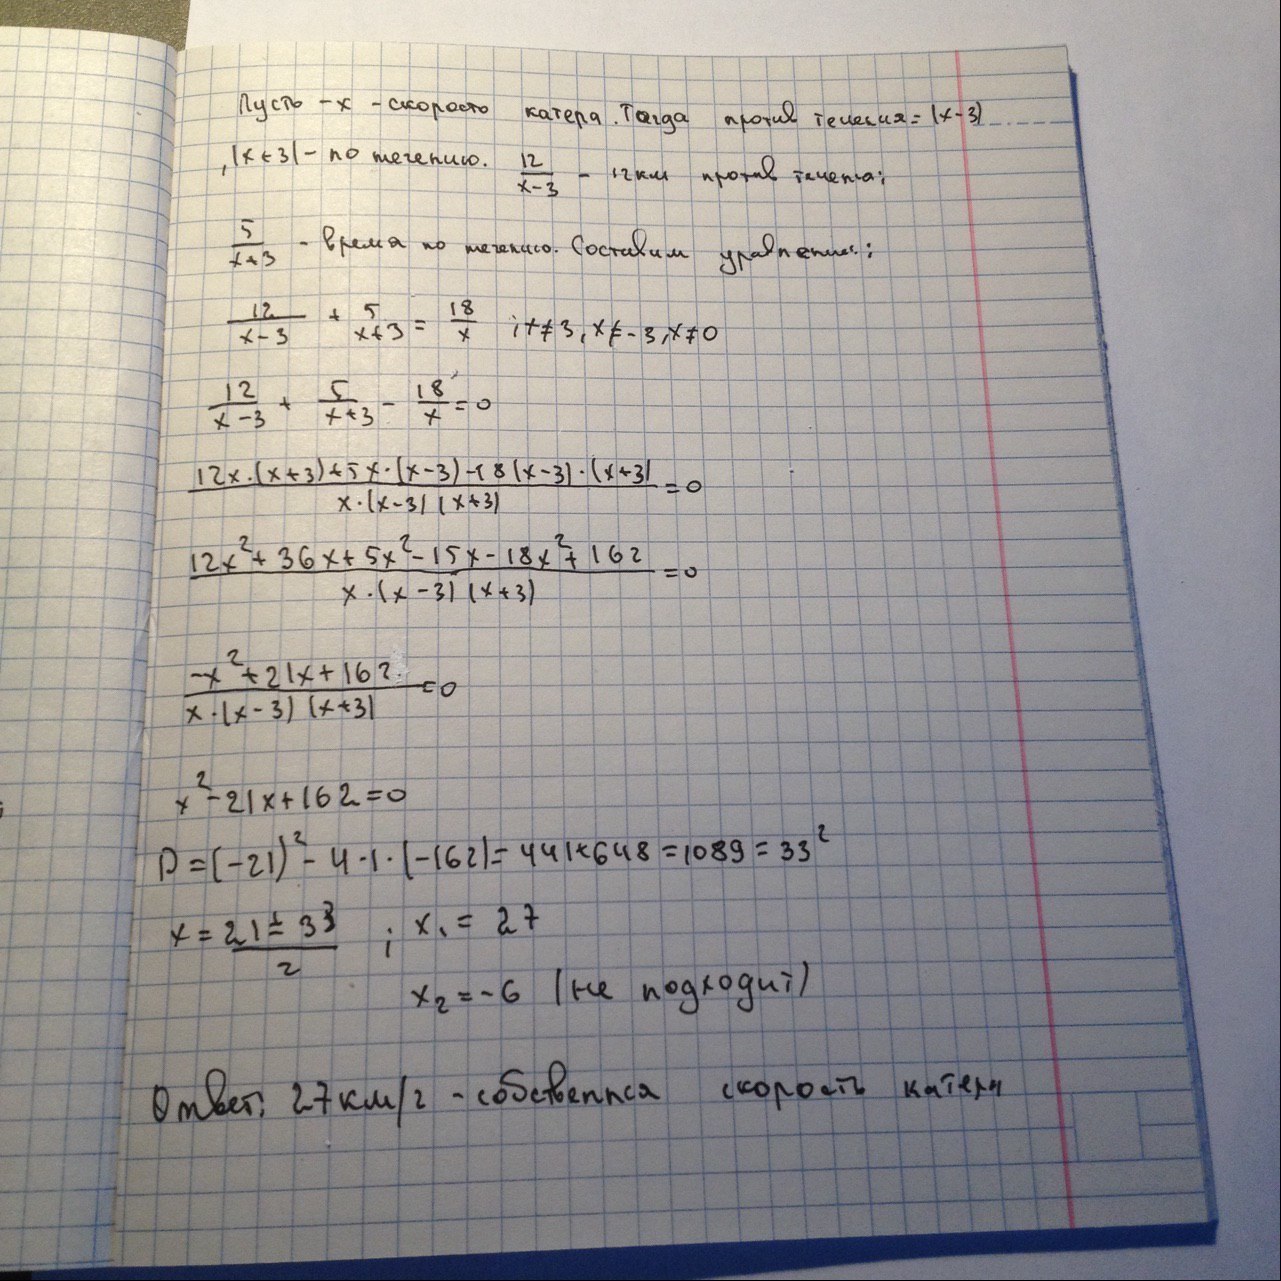 Пусть - x - скорость катера. Тогда против течения = (x-3)
, (x+3) - по течению. 12/(x-3) - 12км против течения;
5/(x+3) - время по течению. Составим уравнение:
12/(x-3) + 5/(x+3) = 18/x ; x≠3, x≠-3, x≠0
12/(x-3) + 5/(x+3) - 18/x = 0
(12x·(x+3)+5x·(x-3)-18(x-3)·(x+3))/(x·(x-3)(x+3)) = 0
(12x²+36x+5x²-15x-18x²+162)/(x·(x-3)(x+3)) = 0
(-x²+21x+162)/(x·(x-3)(x+3)) = 0
x²-21x+162=0
D=(-21)²-4·1·(-162)=441+648=1089=33²
x = (21±33)/2 ; x₁ = 27
x₂ = -6 (не подходит)
Ответ: 27км/ч - собственная скорость катера